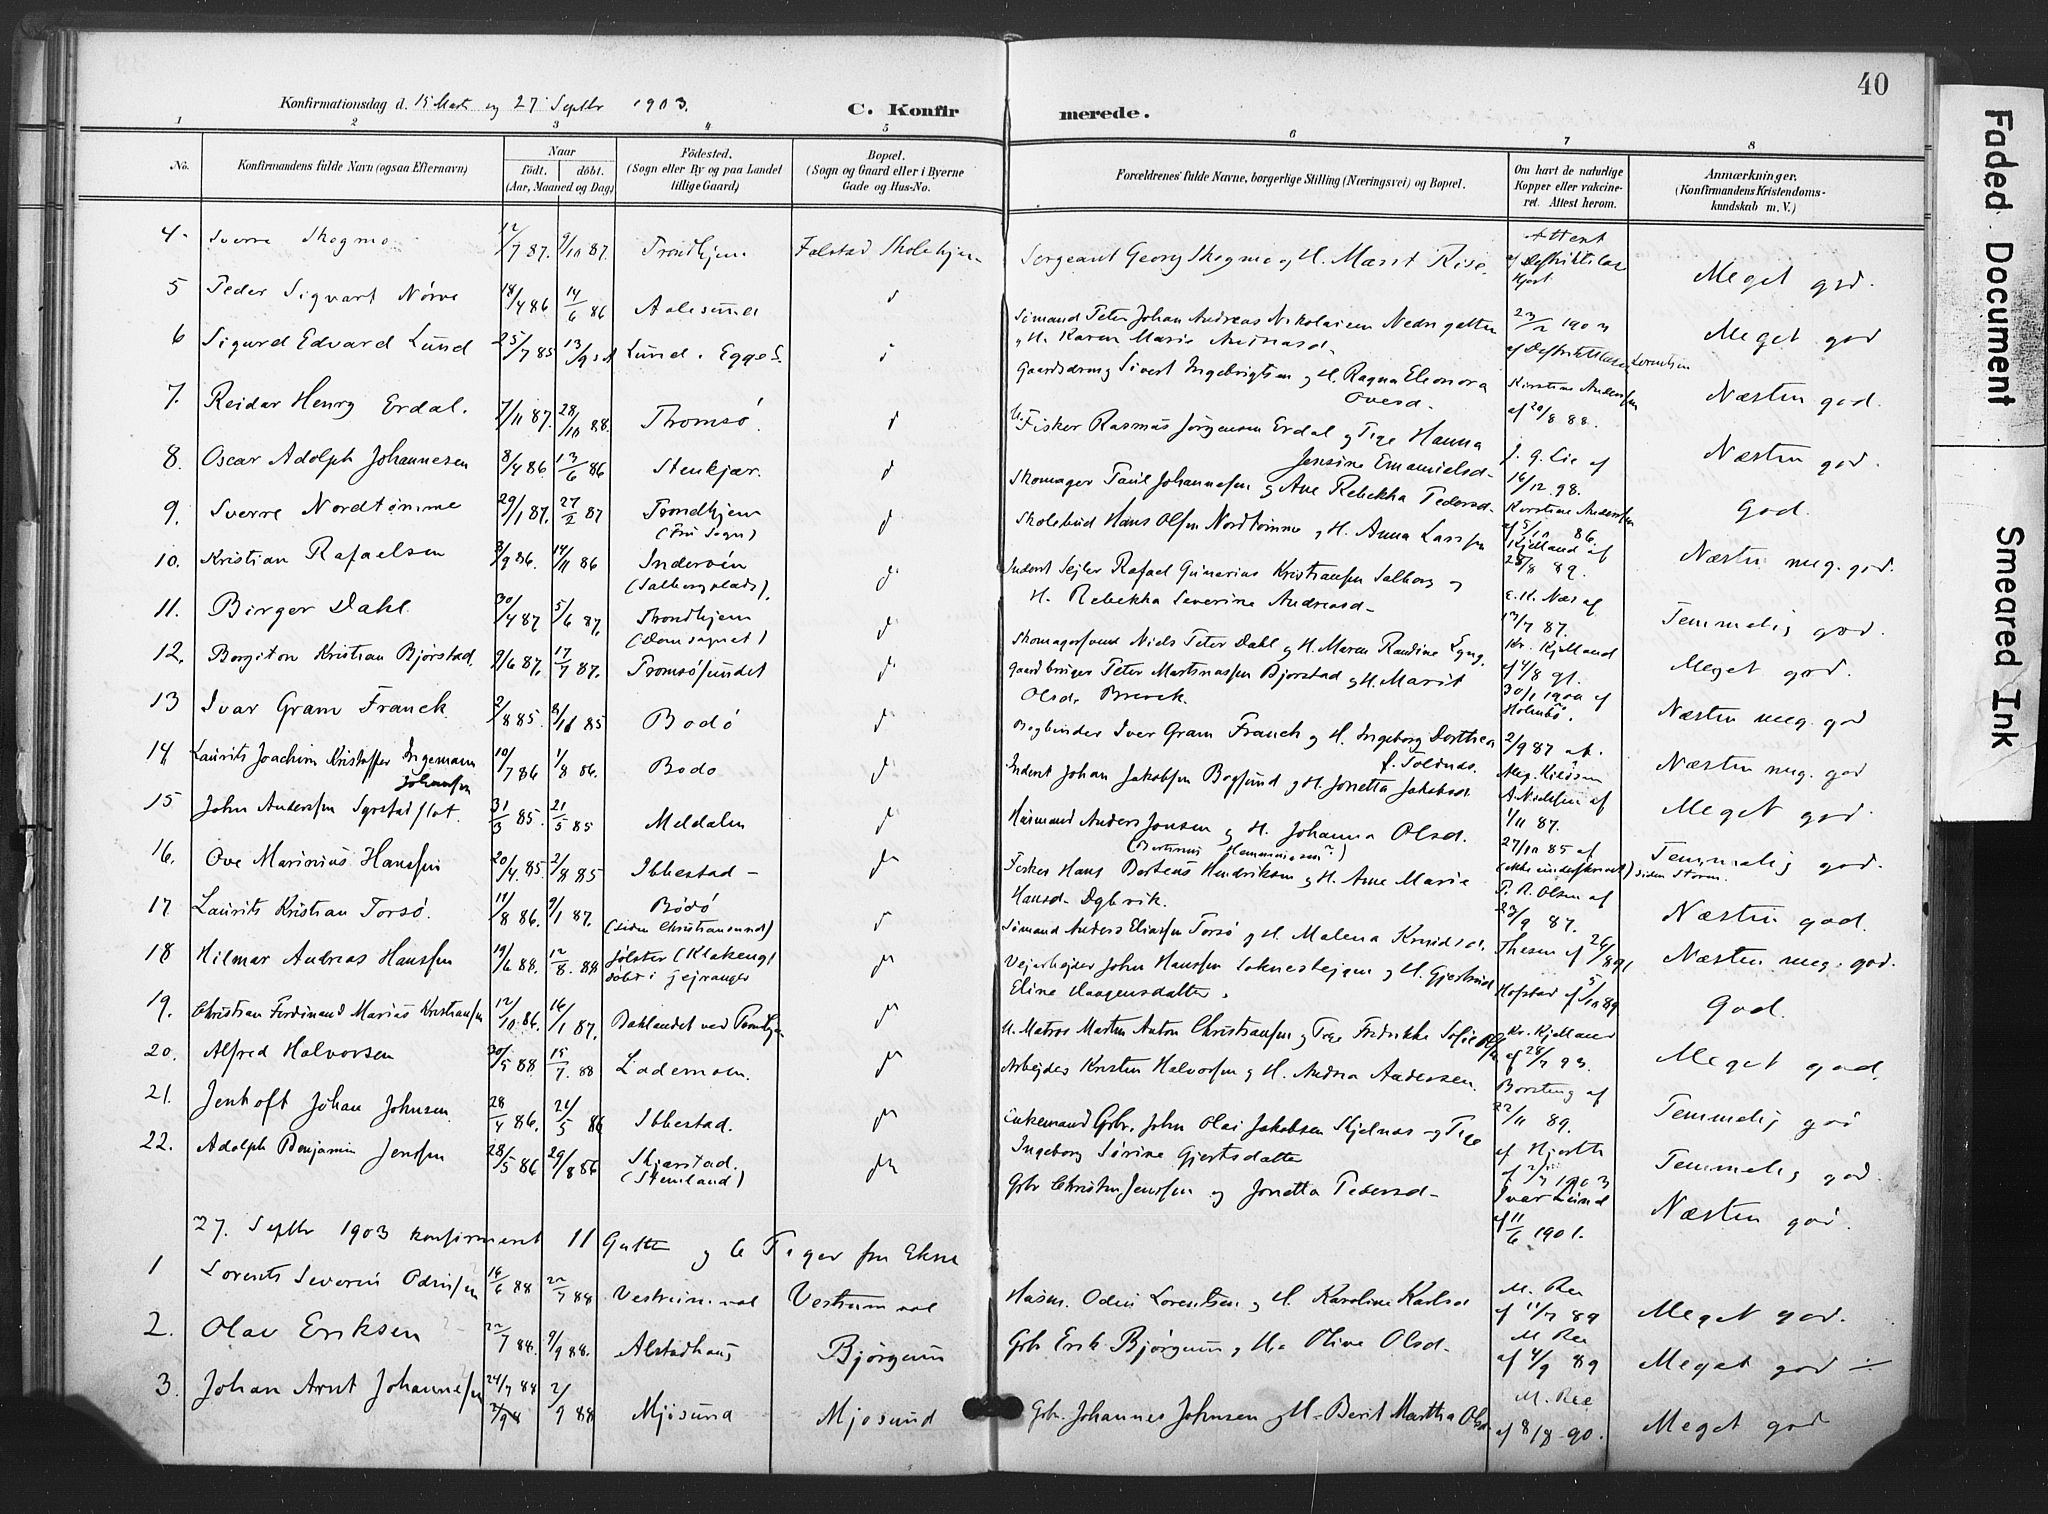 40
Konfirmationsdag d. 15 Mart og 27 Septbr 1903.
C. Konfirmerede.
1 2 3 4 5 6 7 8
No.
Konfirmandens fulde Navn (ogsaa Efternavn)
Naar
födt. döbt.
(Aar, Maaned og Dag)
Födested.
(Sogn eller By og paa Landet
tillige Gaard)
Bopæl.
(Sogn og Gaard eller i Byerne
Gade og Hus-No.
Forældrenes fulde Navne, borgerlige Stilling (Næringsvei) og Bopæl.
Om havt de naturlige
Kopper eller vakcine-
ret. Attest herom.
Anmærkninger,
(Konfirmandens Kristendoms-
kundskab m. V.)
4. Sverre Skogmo 12/7 87. 9/10 87. Trondhjem Falstad Skolehjem Sergeant Georg Skogmo og H. Marit Rise. Attest Meget god.
5 Peder Sigvart Nörve 18/4 86 14/6 86 Aalesund d Sömand Peter Johan Andreas Nikolaisen Nedregotten
og H. Karen Marie Andreasd. 23/2 1903 Meget god
6 Sigurd Edvard Lund 25/7 85 13/9 Lund. Egge S. d Gaardsdreng Sivert Ingebrigtsen og H. Ragna Eleonora
Ovesd. Næsten god.
7. Reidar Henry Erdal. 7/11 87. 28/10 88. Tromsö. d Fisker Rasmus Jörgensen Erdal og Pige Hanna
Jensine Emanuelsd. af 20/8 88. Næsten god.
8. Oscar Adolph Johannesen 8/4 86 13/6 86 Stenkjær. d Skomager Paul Johannesen og Ane Rebekka Pedersd. J. G. Lie af
16/12 98. God.
9. Sverre Nordtömme 29/1 87. 27/2 87 Trondhjem
(Fru Sogn) d Skolebud Hans Olsen Nordtömme og H. Anna Larssen af 5/10 86. Næsten meg. god.
10. Kristian Rafaelsen 3/9 86. 14/11 86 Inderöen
(Salbergplads). d Inderst Sejler Rafael Gunerius Kristiansen Salberg og
H. Rebekka Severine Andreasd. Kjelland af
28/8 89. Temmelig god.
11. Birger Dahl 30/4 87. 5/6 87. Trondhjem
(Domsognet) d Skomagersvend Niels Peter Dahl og H. Maren Randine Lyng. E. K. Næs af
13/7 87. Meget god.
12. Borgiton Kristian Bjørstad. 9/6 87. 17/7 87. Tromsösundet d Gaardbruger Peter Martinassen Bjørstad og H. Marit
Olsd. Brevik. Kr. Kjelland
af 4/8 91. Næsten meg. god
13 Ivar Gram Franck 2/8 85. 8/11 85 Bodö d Bogbinder Iver Gram Franck og H. Ingeborg Dorthea
f. Toldnæs. 30/1 1900 af
Holmbö. Næsten meg. god
14 Laurits Joachim Kristoffer Ingemann
Johansen 10/7 86 1/8 86. Bodö d Inderst Johan Jakobsen Bogsund og H. Jonetta Jakobsd. 2/9 87 af Meget god.
15 John Anderssen Syrstadslot. 31/3 85. 21/5 85 Meldalen d Husmand Anders Jonsen og H. Johanna Olsd. A. Nielsen af
1/11 87. Temmelig god.
16. Ove Marinius Hanssen 20/4. 85. 2/8 85 Ibbestad - do Fisker Hans Berteus Hendriksen og H. Ane Marie
Hansd. Dybvik. 27/10 85 af
(ikke underskrevet) siden Storm. Næsten god.
17. Laurits Kristian Torsö. 11/8 86. 9/1 87. Bodö
(siden Christianssund) d Sömand Anders Eliassen Torsö og H. Malena Knudsd. P. A. Olsen af
23/9 87. Næsten meg. god.
18 Hilmar Andreas Hanssen 19/6 88. 12/8. 88 Jölster (Klakeng)
döbt i Gejranger do Vejarbejder John Hanssen Soknestejgen og H. Gjertrud
Eline Haagensdatter. Thesen af 26/ 89 God.
19. Christian Ferdinand Marius Kristiansen 12/10. 86. 16/1 87. Baklandet ved Trondhjem do U. Matros Martin Anton Christiansen og Pige Fredrikke Sofie Hofstad af 5/10 89 Meget god.
20. Alfred Halvorsen 30/5 88 15/7. 88 Lademoen. do Arbejder Kristen Halvorsen og H. Andrea Andersen. Kr. Kjelland
af 28/7 93. Temmelig god
21. Jentoft Johan Johnsen 28/4 86. 21/5 86 Ibbestad. do Enkemand Gbr. John Olai Jakobsen Skjelnæs og Pige
Ingeborg Sörine Gjertsdatter Borsteng af
22/11 89. Temmelig god.
22. Adolph Benjamin Jenssen 28/5 86 29/8 86 Skjerstad.
(Stemland) do Gbr Christen Jenssen og Jonetta Pedersd. Ivar Lund
af 11/6 1901. Næsten god.
27. Septbr 1903 konfirmeret 11 Gutter og 6 Piger fra Ekne
1 Lorents Severin Odinsen 16/6 88 22/7 88 Vestrum. val Vestrum val Husm. Odin Lorentsen og H. Karoline Karlsd M. Ree
af 11/7 89 Meget god.
2. Olav Eriksen 22/7 88. 9/9 88. Alstadhaug Björgum Gbr Erik Björgum og H. Olive Olsd. M. Ree
af 4/9 89 Meget god
3. Johan Arnt Johannesen 24/7 88 2/9 88 Mjösund Mjosund Gbr. Johannes Johnsen og H. Berit Martha Olsd. M. Ree
af 8/8 90. Meget god
Faded Document
Smeared Ink